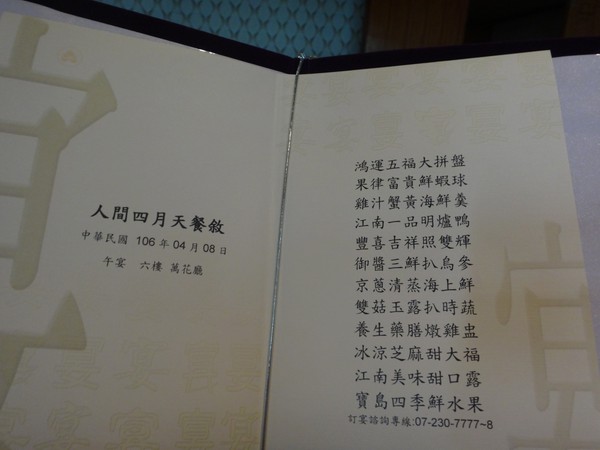 人間四月天餐敘
中華民國 106 年 04 月 08 日
午宴 六樓 萬花廳
鴻運五福大拼盤
果律富貴鮮蝦球
雞汁蟹黃海鮮羹
江南一品明爐鴨
豐喜吉祥照雙輝
御醬三鮮扒烏參
京蔥清蒸海上鮮
雙菇玉露扒時蔬
養生藥膳燉雞盅
冰涼芝麻甜大福
江南美味甜口露
寶島四季鮮水果
訂宴諮詢專線:07-230-7777~8